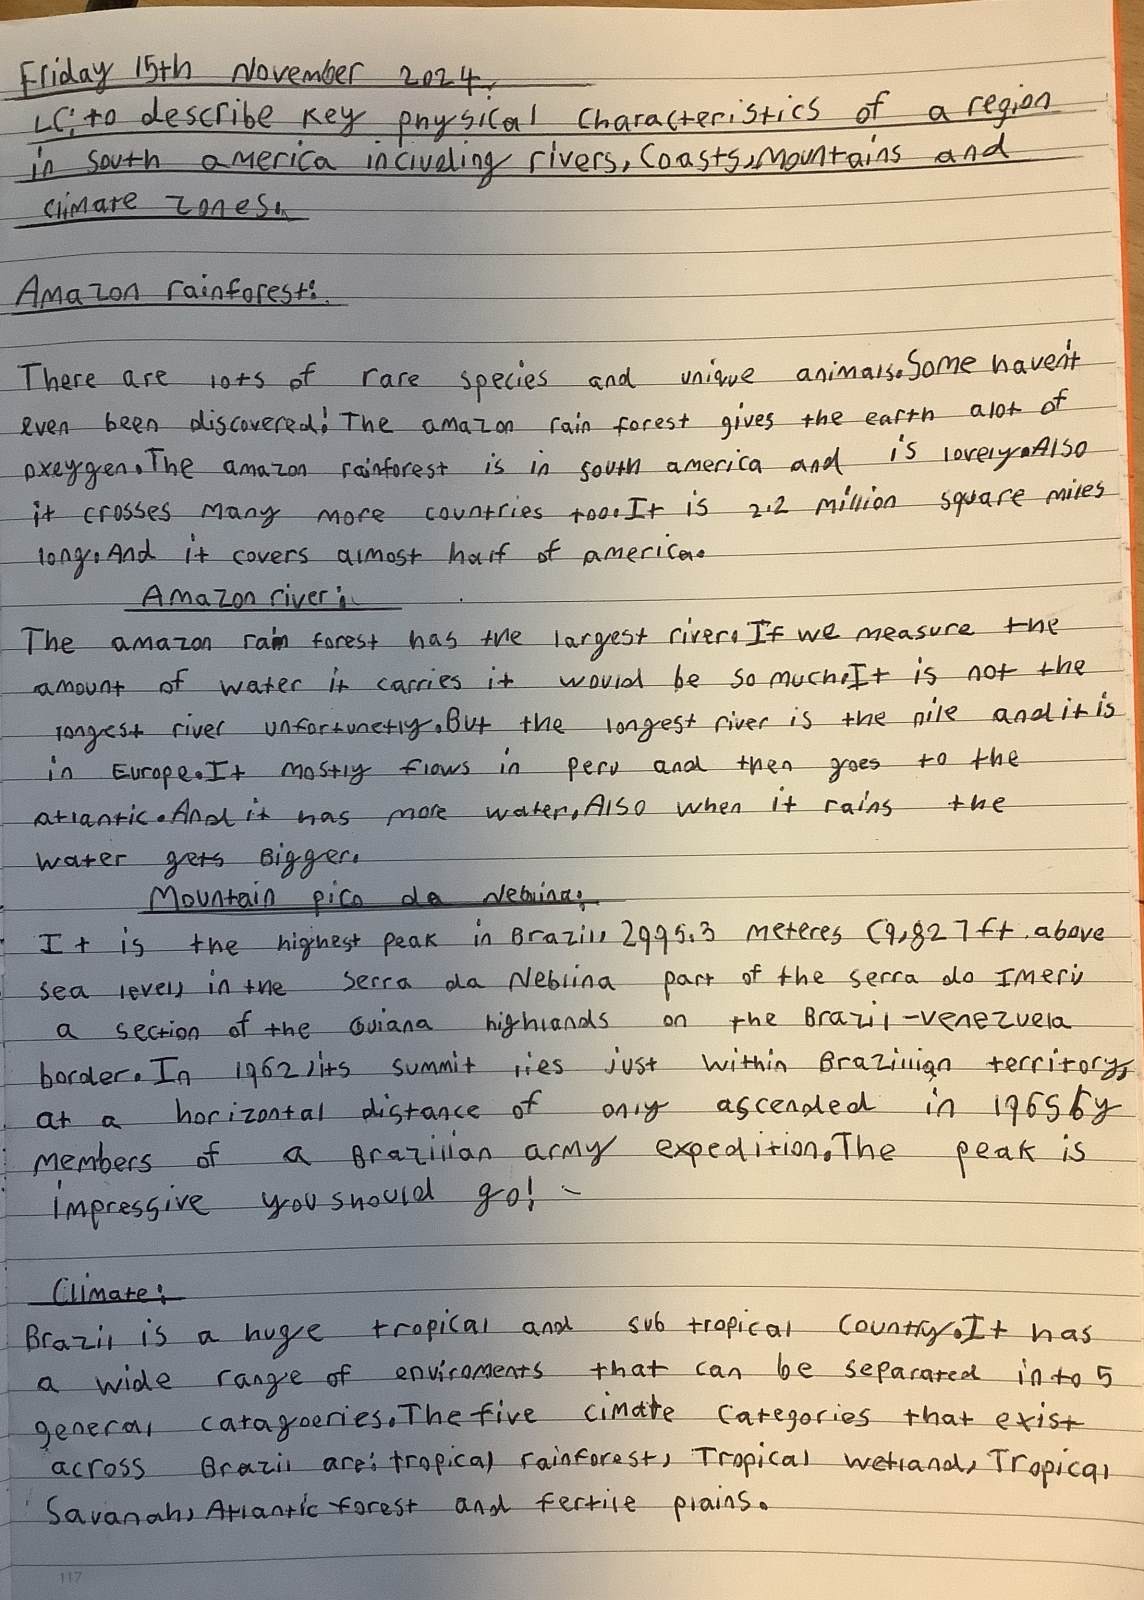 Friday 15th November 2024.
LC: to describe key physical characteristics of a region
in south america including rivers, Coasts, Mountains and
climate zones.
Amazon rainforest:
There are lots of rare species and unique animals. Some haven't
even been discovered! The amazon rain forest gives the earth alot of
oxeygen. The amazon rainforest is in south america and is lovely. Also
it crosses many more countries too. It is 2.2 million square miles
long. And it covers almost half of america.
Amazon river:
The amazon rain forest has the largest river. If we measure the
amount of water it carries it would be so much. It is not the
longest river unfortunetly. But the longest river is the nile and it is
in Europe. It mostly flows in peru and then goes to the
atlantic. And it has more water. Also when it rains the
water gets Bigger.
Mountain pico da Neblina:
It is the highest peak in Brazil, 2995.3 meteres (9,827 ft. above
sea level, in the Serra da Neblina part of the serra do Imeri
a section of the Guiana highlands on the Brazil-venezuela
border. In 1962, its summit lies just within Brazilian territory,
at a horizontal distance of only ascended in 1965 by
members of a Brazilian army expedition. The peak is
impressive you should go!
Climate:
Brazil is a huge tropical and sub tropical country. It has
a wide range of enviroments that can be separated into 5
general catagoeries. The five cimate categories that exist
across Brazil are: tropical rainforest, Tropical wetland, Tropical
Savanah, Atlantic forest and fertile plains.
117